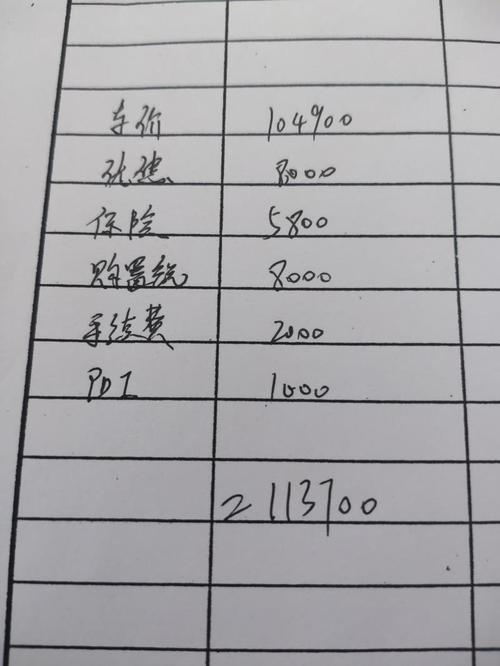 车价 104900
优惠 8000
保险 5800
购置税 8000
手续费 2000
PDI 1000
= 113700